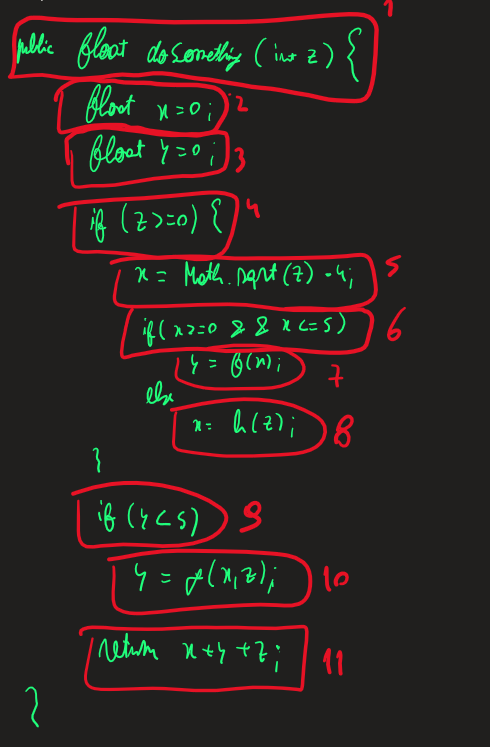 public float dosomething (int z) { 1
float x = 0; 2
float y = 0; 3
if (z >= 0) { 4
x = Math.sqrt(z) - 4; 5
if (x >= 0 && x <= 5) 6
y = f(x); 7
else
x = h(z); 8
}
if (y < 5) 9
y = (x, z); 10
return x + y + z; 11
}